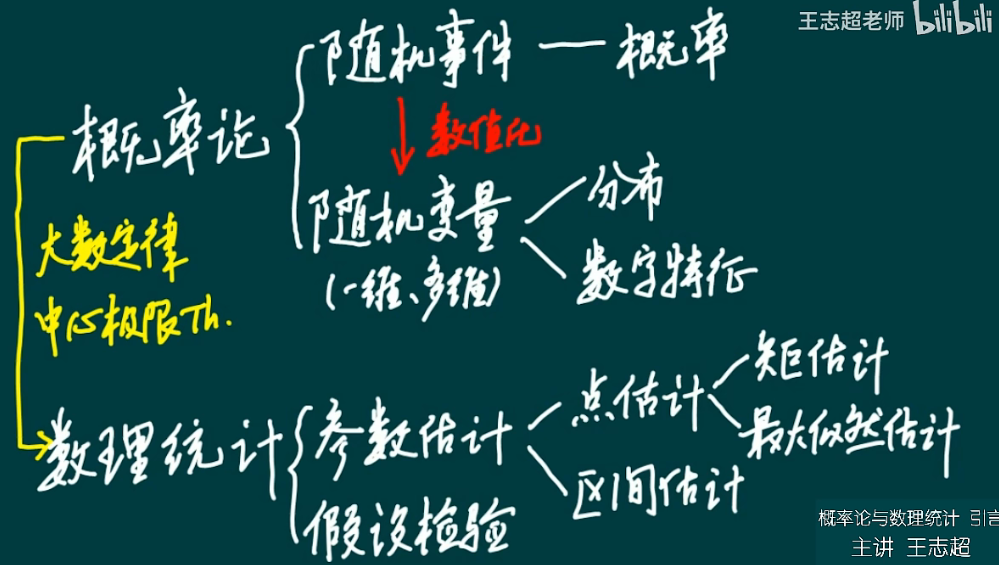 王志超老师 bilibili
随机事件 — 概率
概率论
数值化
随机变量
分布
(一维、多维)
数字特征
大数定律
中心极限Th.
数理统计
参数估计
点估计
矩估计
最大似然估计
区间估计
假设检验
概率论与数理统计 引言
主讲 王志超